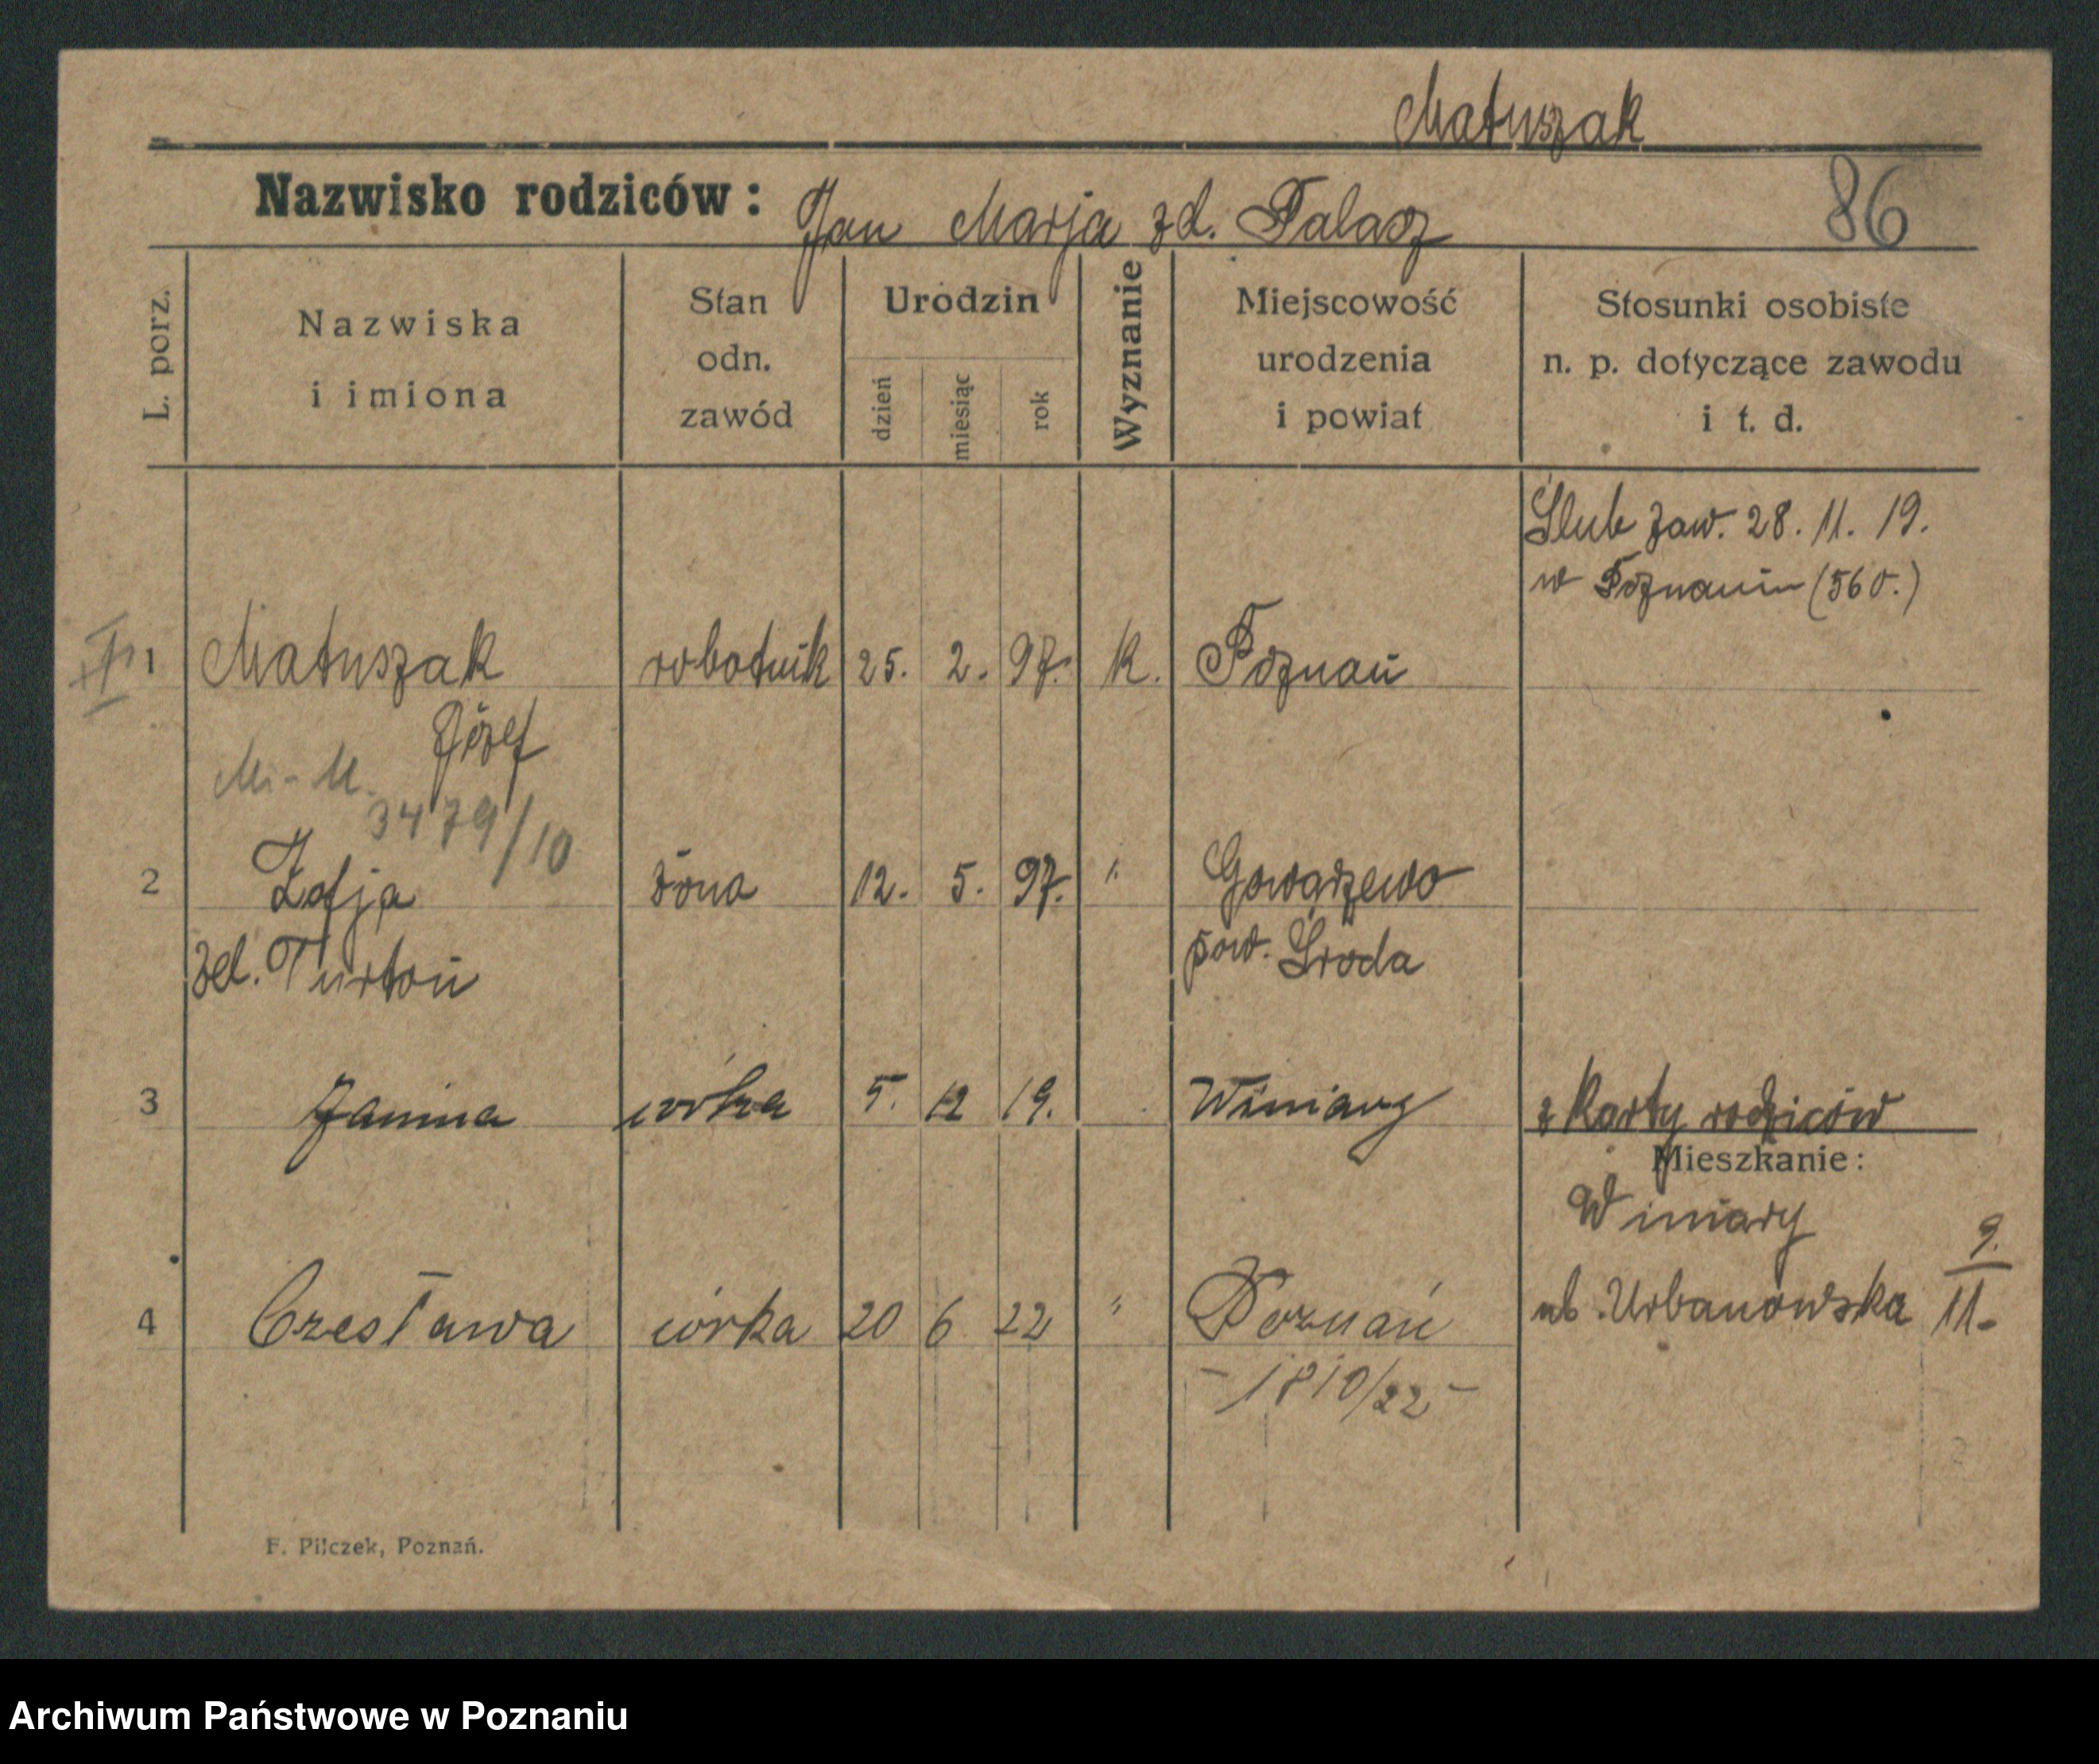 Matuszak
Nazwisko rodziców: Jan Marja zd. Palacz
86
L. porz.
Nazwiska i imiona
Stan odn. zawód
Urodzin
dzień miesiąc rok
Wyznanie
Miejscowość urodzenia i powiat
Stosunki osobiste n. p. dotyczące zawodu i t. d.
Ślub zaw. 28. 11. 19.
w Poznaniu (560.)
1 Matuszak robotnik 25. 2. 97. k. Poznań
Józef
M.-M.
3479/10
2 Zofja żona 12. 5. 97. " Gowarzewo
zd. Turtoń pow. Środa
3 Janina córka 5. 12 19. Winiary z karty rodziców
Mieszkanie:
Winiary
ul. Urbanowska 9./11.
4 Czesława córka 20 6 22 " Poznań
- 1810/22 -
F. Pilczek, Poznań.
Archiwum Państwowe w Poznaniu